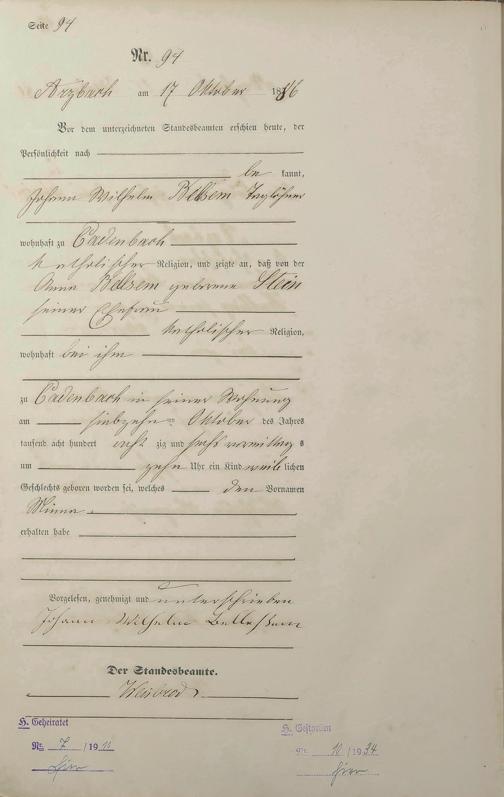 Seite 94
Nr. 94
Arzbach am 17 Oktober 1886
Vor dem unterzeichneten Standesbeamten erschien heute, der
Persönlichkeit nach
be kannt,
Johann Wilhelm Bellsem Taglöhner
wohnhaft zu Cadenbach
katholischer Religion, und zeigte an, daß von der
Anna Bellsem geborene Stein
seiner Ehefrau
katholischer Religion,
wohnhaft bei ihm
zu Cadenbach in seiner Wohnung
am siebzehn ten Oktober des Jahres
tausend acht hundert acht zig und sechs vormittag s
um zehn Uhr ein Kind weib lichen
Geschlechts geboren worden sei, welches den Vornamen
Minna
erhalten habe
Vorgelesen, genehmigt und unterschrieben
Johann Wilhelm
Der Standesbeamte.
Weisbrod
H. Geheiratet
Nr. 7 / 1911
hier
H. Gestorben
Nr. 10 / 1934
hier